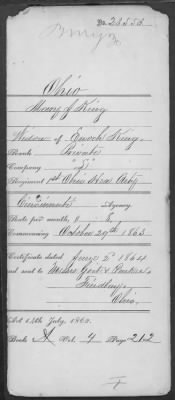 No. 28558
Ohio
King
Widow of Enoch King
Rank Private
Company "L"
Regiment 1st Ohio Hvy Arty
Cincinnati Agency
Rate per month, 8
Commencing October 29th 1863
Certificate dated 1864
and sent to
Findlay
Ohio.
Act 14th July, 1862.
Book A Vol. 4 Page 212